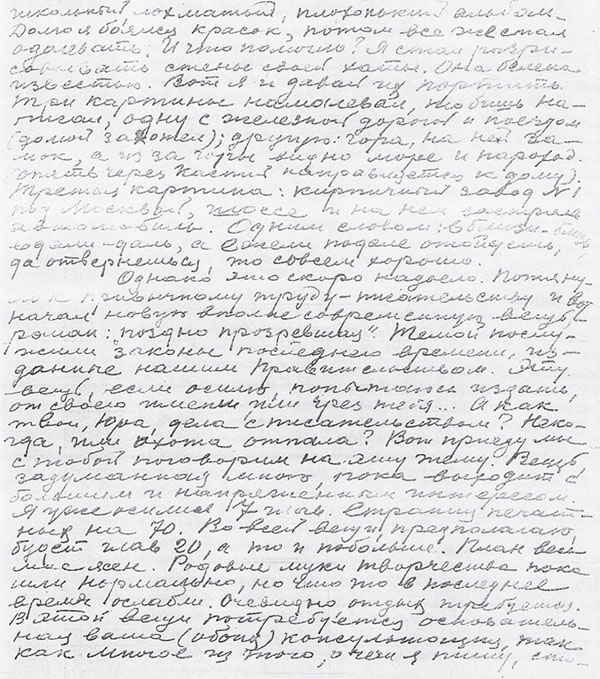 школьный лохматый, плохонький альбом.
Долго я боялся красок, потом все же стал
одолевать. И что помогло? Я стал разри-
совывать стены своей хаты. Она белена
известью. Вот я и давай их портить.
Три картины намалевал, то бишь на-
писал, одну с железной дорогой и поездом
(домой захотел); другую: гора, на ней за-
мок, а из за горы видно море и пароход.
(опять через Каспий направляется к дому).
Третья картина: кирпичный завод №1
под Москвой, шоссе и на нем застряли
автомобиль. Одним словом: вблизи -
вдали - даль, а если подале отойдешь,
да отвернешься, то совсем хорошо.
Однако это скоро надоело. Потяну-
ло к привычному труду - писательству и вот
начал новую вполне современную вещь,
роман: "поздно прозревшая". Темой послу-
жили законы последнего времени, из-
данные нашим Правительством. Эту
вещь, если осилю, попытаюсь издать,
от своего имени или чрез тебя... А как
твои, Юра, дела с писательством? Неко-
гда, или охота отпала? Вот приеду мы
с тобой поговорим на эту тему. Вещь
задуманная мною, пока выходит с
большим и напряженным интересом.
Я уже осилил 7 глав. Страниц печат-
ных на 70. Во всей вещи, предполагаю,
будет глав 20, а то и побольше. План весь
мною
Родовые муки творчества пока
шли нормально, но что то в последнее
время ослабли. Очевидно отдых требуется.
В этой вещи потребуется основатель-
ная ваша (обоих) консультация, так
как многое из того, о чем я пишу, сто-